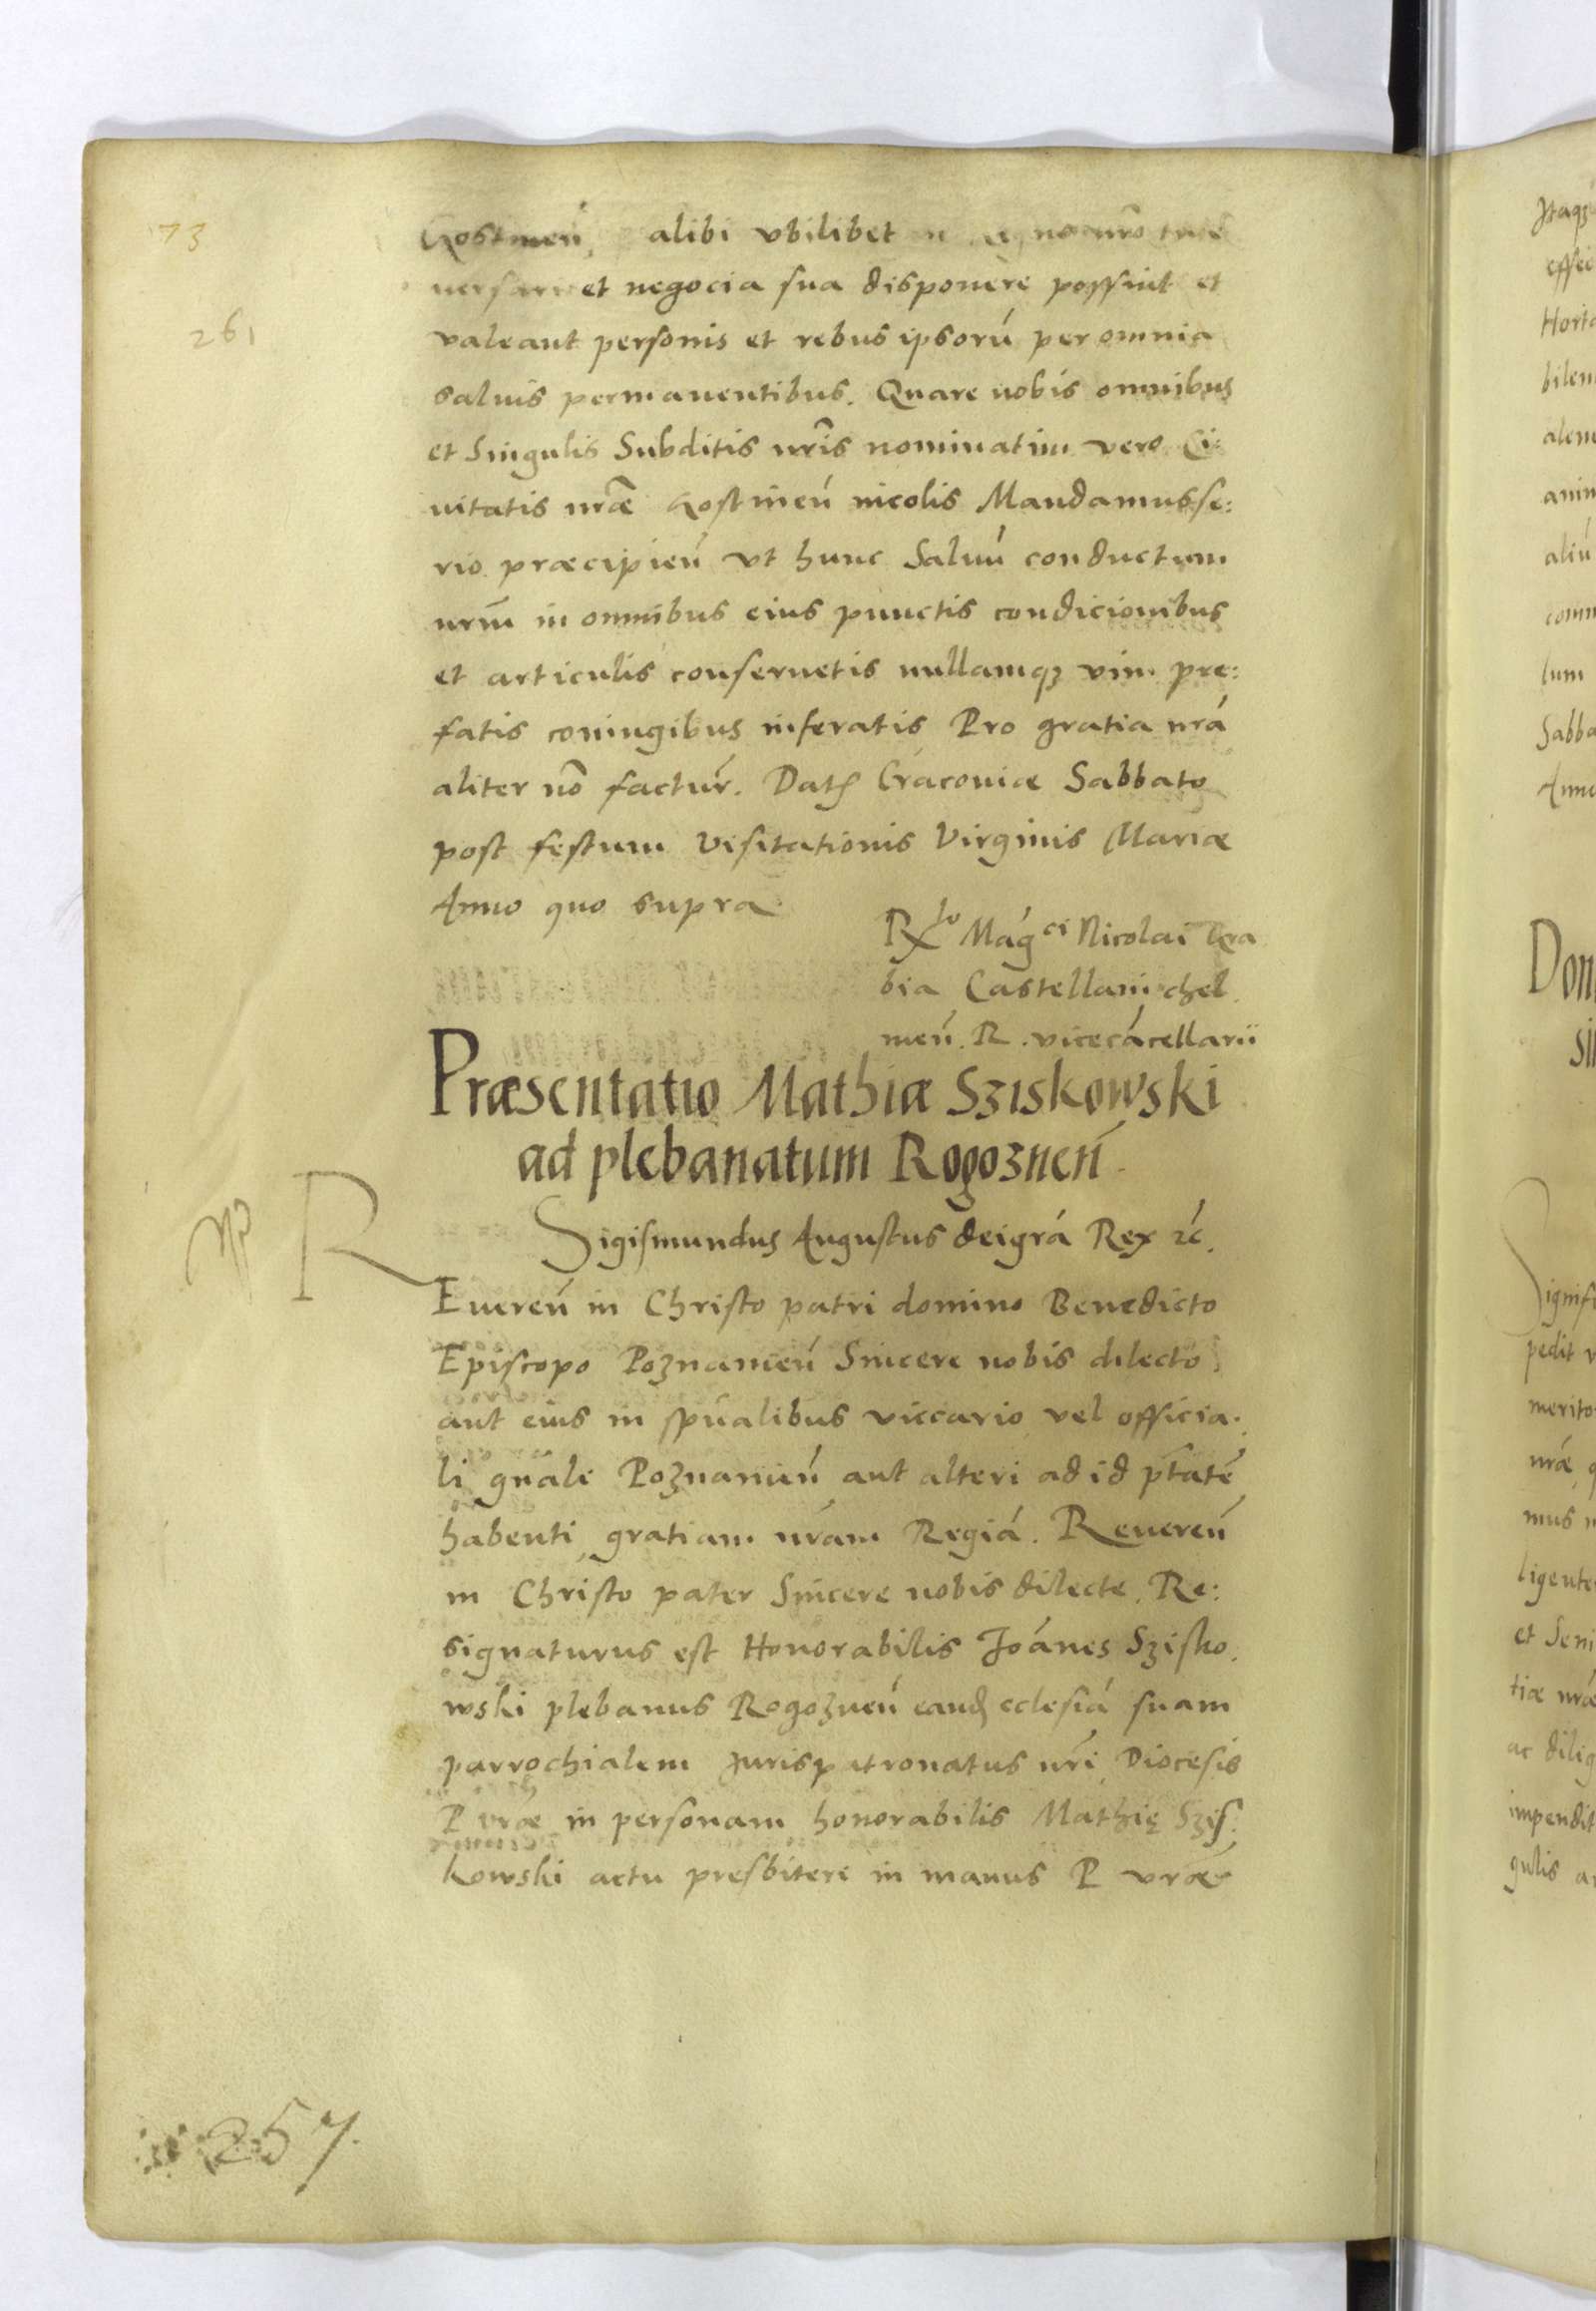 73
261
Gostinen̄, alibi vbilibet
et negocia sua disponere possint et
valeant personis et rebus ipsorū per omnia
saluis permanentibus. Quare vobis omnibus
et Singulis Subditis nr̄is nominatim vero Ci:
uitatis nr̄æ Gostinen̄ incolis Mandamus se:
rio præcipien̄ vt hunc Saluū conductum
nr̄m in omnibus eius punctis condicionibus
et articulis conseruetis nullamqꝫ vim pre:
fatis coniugibus inferatis Pro gratia nr̄a
aliter nō factur̄. Datꝭ Cracouiæ Sabbato
post festum Visitationis Virginis Mariæ
Anno quo supra
Rx^to Mag^ci Nicolai Gra
bia Castellani chel
men̄. R. vicecācellarii
Præsentatio Mathiæ Sziskowski
ad plebanatum Rogoznen̄.
R
Sigismundus Augustus dei grā Rex ꝛc.
Eueren̄ in Christo patri domino Benedicto
Episcopo Poznanien̄ Sincere nobis dilecto
aut eius in sp̄ualibus viccario vel officia.
li gn̄ali Poznanien̄ aut alteri ad id pt̄atē
habenti gratiam nr̄am Regiā. Reueren̄
in Christo pater Sincere nobis dilecte. Re:
signaturus est Honorabilis Joānes Szisko.
wski plebanus Rogoznen̄ eandꝭ eclesiā suam
parrochialem Jurispatronatus nr̄i Diocesis
P vr̄æ in personam honorabilis Mathię Szis:
kowski actu presbiteri in manus P vr̄æ
257.